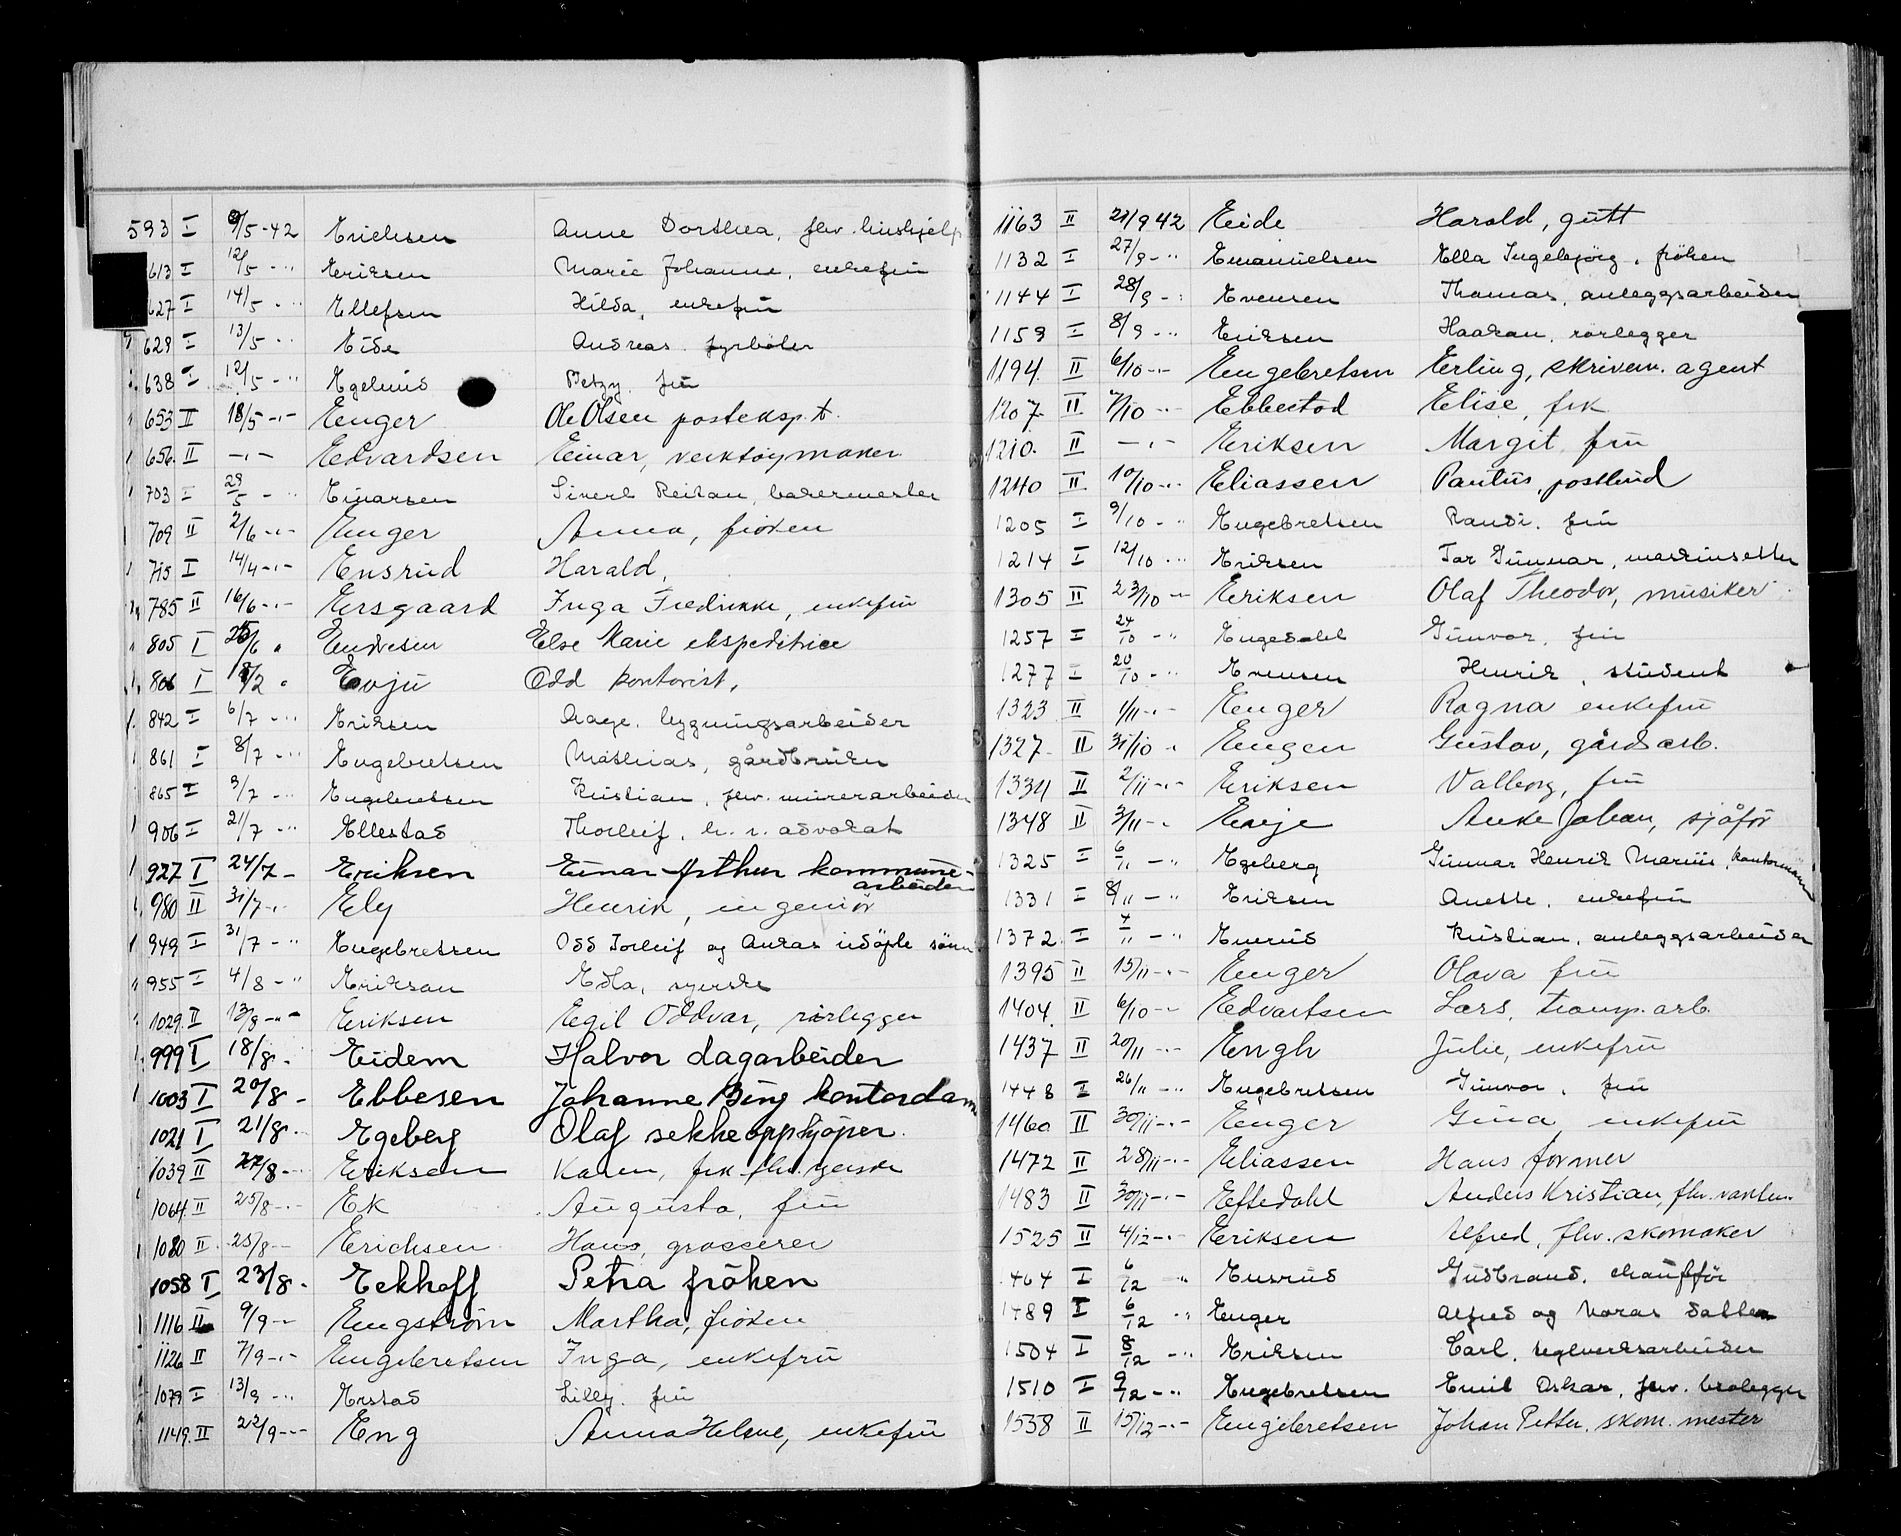 593 I 9/5-42 Erichsen Anne Dorthea, flv. hushjelp
613 I 12/5 - " Eriksen Marie Johanne, enkefru
627 I 14/5 - " Ellefsen Hilda, enkefru
629 I 13/5 - " Eide Andreas, fyrböter
638 I 12/5 - " Egelund Betzy, fru
653 II 18/5 -"- Enger Ole Olsen posteksp.t.
656. II -"- Edvardsen Einar, verktøymaker
703 I 29/5 - " Einarsen Sivert Reitan, bakermester
709 II 2/6 -"- Enger Anna, frøken
715 I 14/4 -"- Ensrud Harald,
785 II 16/6 -"- Ersgaard Inga Fredrikke, enkefru
805 I 25/6 " Endresen Else Marie ekspeditrice
806 I 18/2 " Evju Odd kontorist,
842 I 6/7 - " Eriksen Aage, bygningsarbeider
861 I 8/7 - " Engebretsen Mathias, gårdbruker
865 I 3/7 - " Engebretsen Kristian, flv. murerarbeider
906 I 21/7 - " Ellestad Thorleif, h. r. advokat
927 I 24/7 - Eriksen Einar Arthur kommune-
arbeider
980 II 31/7 -"- Ely Henrik, ingeniør
949 I 31/7 - " Engebretsen Odd Torleif og Andas udöpte sönn
955 I 4/8 - " Erikson Edla, syerske
1029. II 13/8 -"- Eriksen Egil Oddvar, rørlegger
999 I 18/8 - Eidem Halvor dagarbeider
1003 I 20/8 - Ebbesen Johanne Bing kontordame
1021 I 21/8 - Egeberg Olaf sekkeoppkjöper.
1039 II 27/8 -"- Eriksen Karen, frk. flv. syerske
1064. II 25/8 -"- Ek Augusta, fru
1080 II 25/8 - Erichsen Hans, grosserer
1058 I 23/8 - Eckhoff Petra fröken
1116 II 9/9 - Engstrøm Martha, frøken
1126 II 7/9 -"- Engebretsen Inga, enkefru
1079 I 13/9 - " Erstad Lilly, fru
1149. II 22/9 -"- Eng Anna Helene, enkefru
1163 II 21/9 42 Eide Harald, gutt
1132 I 27/9 - " Emanuelsen Ella Ingebjörg, fröken
1144 I 28/9 - " Evensen Thomas, anleggsarbeider
1159 I 8/9 - " Eriksen Haakon, rörlegger
1194. II 6/10 -"- Engebretsen Erling, skrivem. agent
1207. II 7/10 -"- Ebbestad Elise, frk
1210. II -"- Eriksen Margit fru
1240 II 10/10 -"- Eliassen Pantus, postbud
1205 I 9/10 - " Engebretsen Randi, fru
1214 I 12/10 - " Eriksen Tor Gunnar, maskinsetter
1305 II 23/10 - Eriksen Olaf Theodor, musiker
1257 I 24/10 - " Engedahl Gunvor, fru
1277 I 20/10 - " Evensen Henrik, student
1323 II 1/11 -"- Enger Ragna enkefru
1327. II 31/10 - Engen Gustav, gårdsarb.
1334 II 2/11 -"- Eriksen Valborg, fru
1348 II 3/11 - Eieje Anke Johan, sjåför
1325 I 6/11 - " Egeberg Gunnar Henrik Marius, kontormann
1331 I 8/11 - " Eriksen Anette, enkefru
1372 I 4/11 - " Enerud Kristian, anleggsarbeider
1395 II 15/11 -"- Enger Olava fru
1404. II 6/10 -"- Edvartsen Lars, transp. arb.
1437 II 20/11 -"- Engh Julie, enkefru
1448 I 26/11 - " Engebretsen Gunvor, fru
1460 II 30/11 -"- Enger Gina enkefru
1472 II 28/11 -"- Eliassen Hans former
1483 II 30/11 -"- Eftedahl Anders Kristian, flv. vaktm.
1525 II 4/12 -"- Eriksen Alfred, flv. skomaker
464 I 6/12 - " Ensrud Gudbrand, chauffför
1489 I 6/12 " Enger Alfred og Noras datter
1504 I 8/12 - " Eriksen Carl, teglverksarbeider
1510 I 9/12 - " Engebretsen Emil Oskar, flv. brolegger
1558 II 15/12 -"- Engebretsen Johan Petter, skom. mester